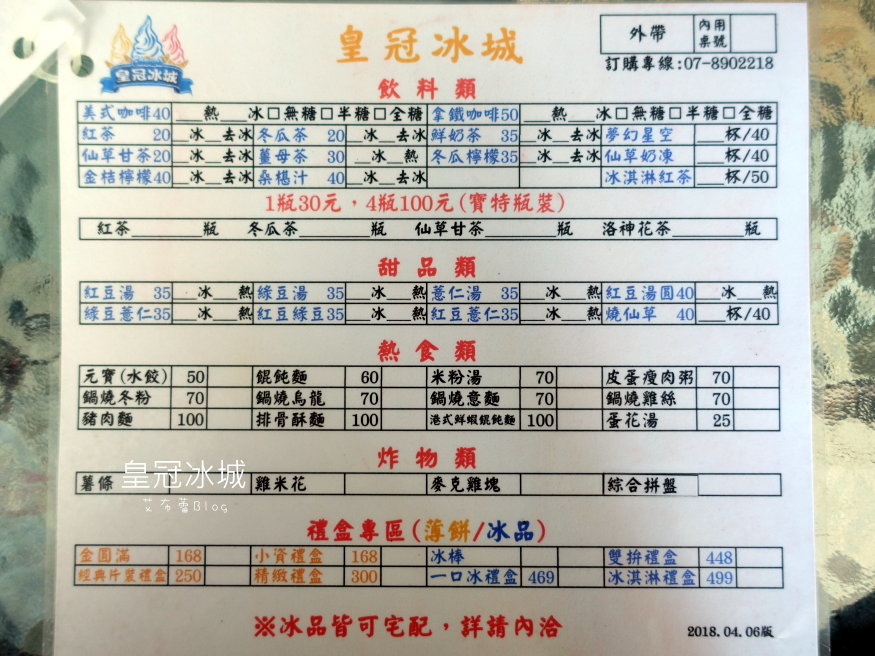 皇冠冰城
皇冠冰城
外帶 內用桌號
訂購專線:07-8902218
飲料類
美式咖啡40 ___熱___冰□無糖□半糖□全糖 拿鐵咖啡50 ___熱___冰□無糖□半糖□全糖
紅茶 20 __冰__去冰 冬瓜茶 20 __冰__去冰 鮮奶茶 35 __冰__去冰 夢幻星空 ___杯/40
仙草甘茶20 __冰__去冰 薑母茶 30 __冰__熱 冬瓜檸檬35 __冰__去冰 仙草奶凍 ___杯/40
金桔檸檬40 __冰__去冰 桑椹汁 40 __冰__去冰 冰淇淋紅茶 ___杯/50
1瓶30元，4瓶100元(寶特瓶裝)
紅茶______瓶 冬瓜茶______瓶 仙草甘茶______瓶 洛神花茶______瓶
甜品類
紅豆湯 35 __冰__熱 綠豆湯 35 __冰__熱 薏仁湯 35 __冰__熱 紅豆湯圓40 __冰__熱
綠豆薏仁35 __冰__熱 紅豆綠豆35 __冰__熱 紅豆薏仁35 __冰__熱 燒仙草 40 ___杯/40
熱食類
元寶(水餃) 50 餛飩麵 60 米粉湯 70 皮蛋瘦肉粥 70
鍋燒冬粉 70 鍋燒烏龍 70 鍋燒意麵 70 鍋燒雞絲 70
豬肉麵 100 排骨酥麵 100 港式鮮蝦餛飩麵 100 蛋花湯 25
炸物類
薯條 雞米花 麥克雞塊 綜合拼盤
皇冠冰城
艾布蕾Blog
禮盒專區(薄餅/冰品)
金圓滿 168 小資禮盒 168 冰棒 雙拚禮盒 448
經典片裝禮盒 250 精緻禮盒 300 一口冰禮盒 469 冰淇淋禮盒 499
※冰品皆可宅配，詳請內洽
2018.04.06版